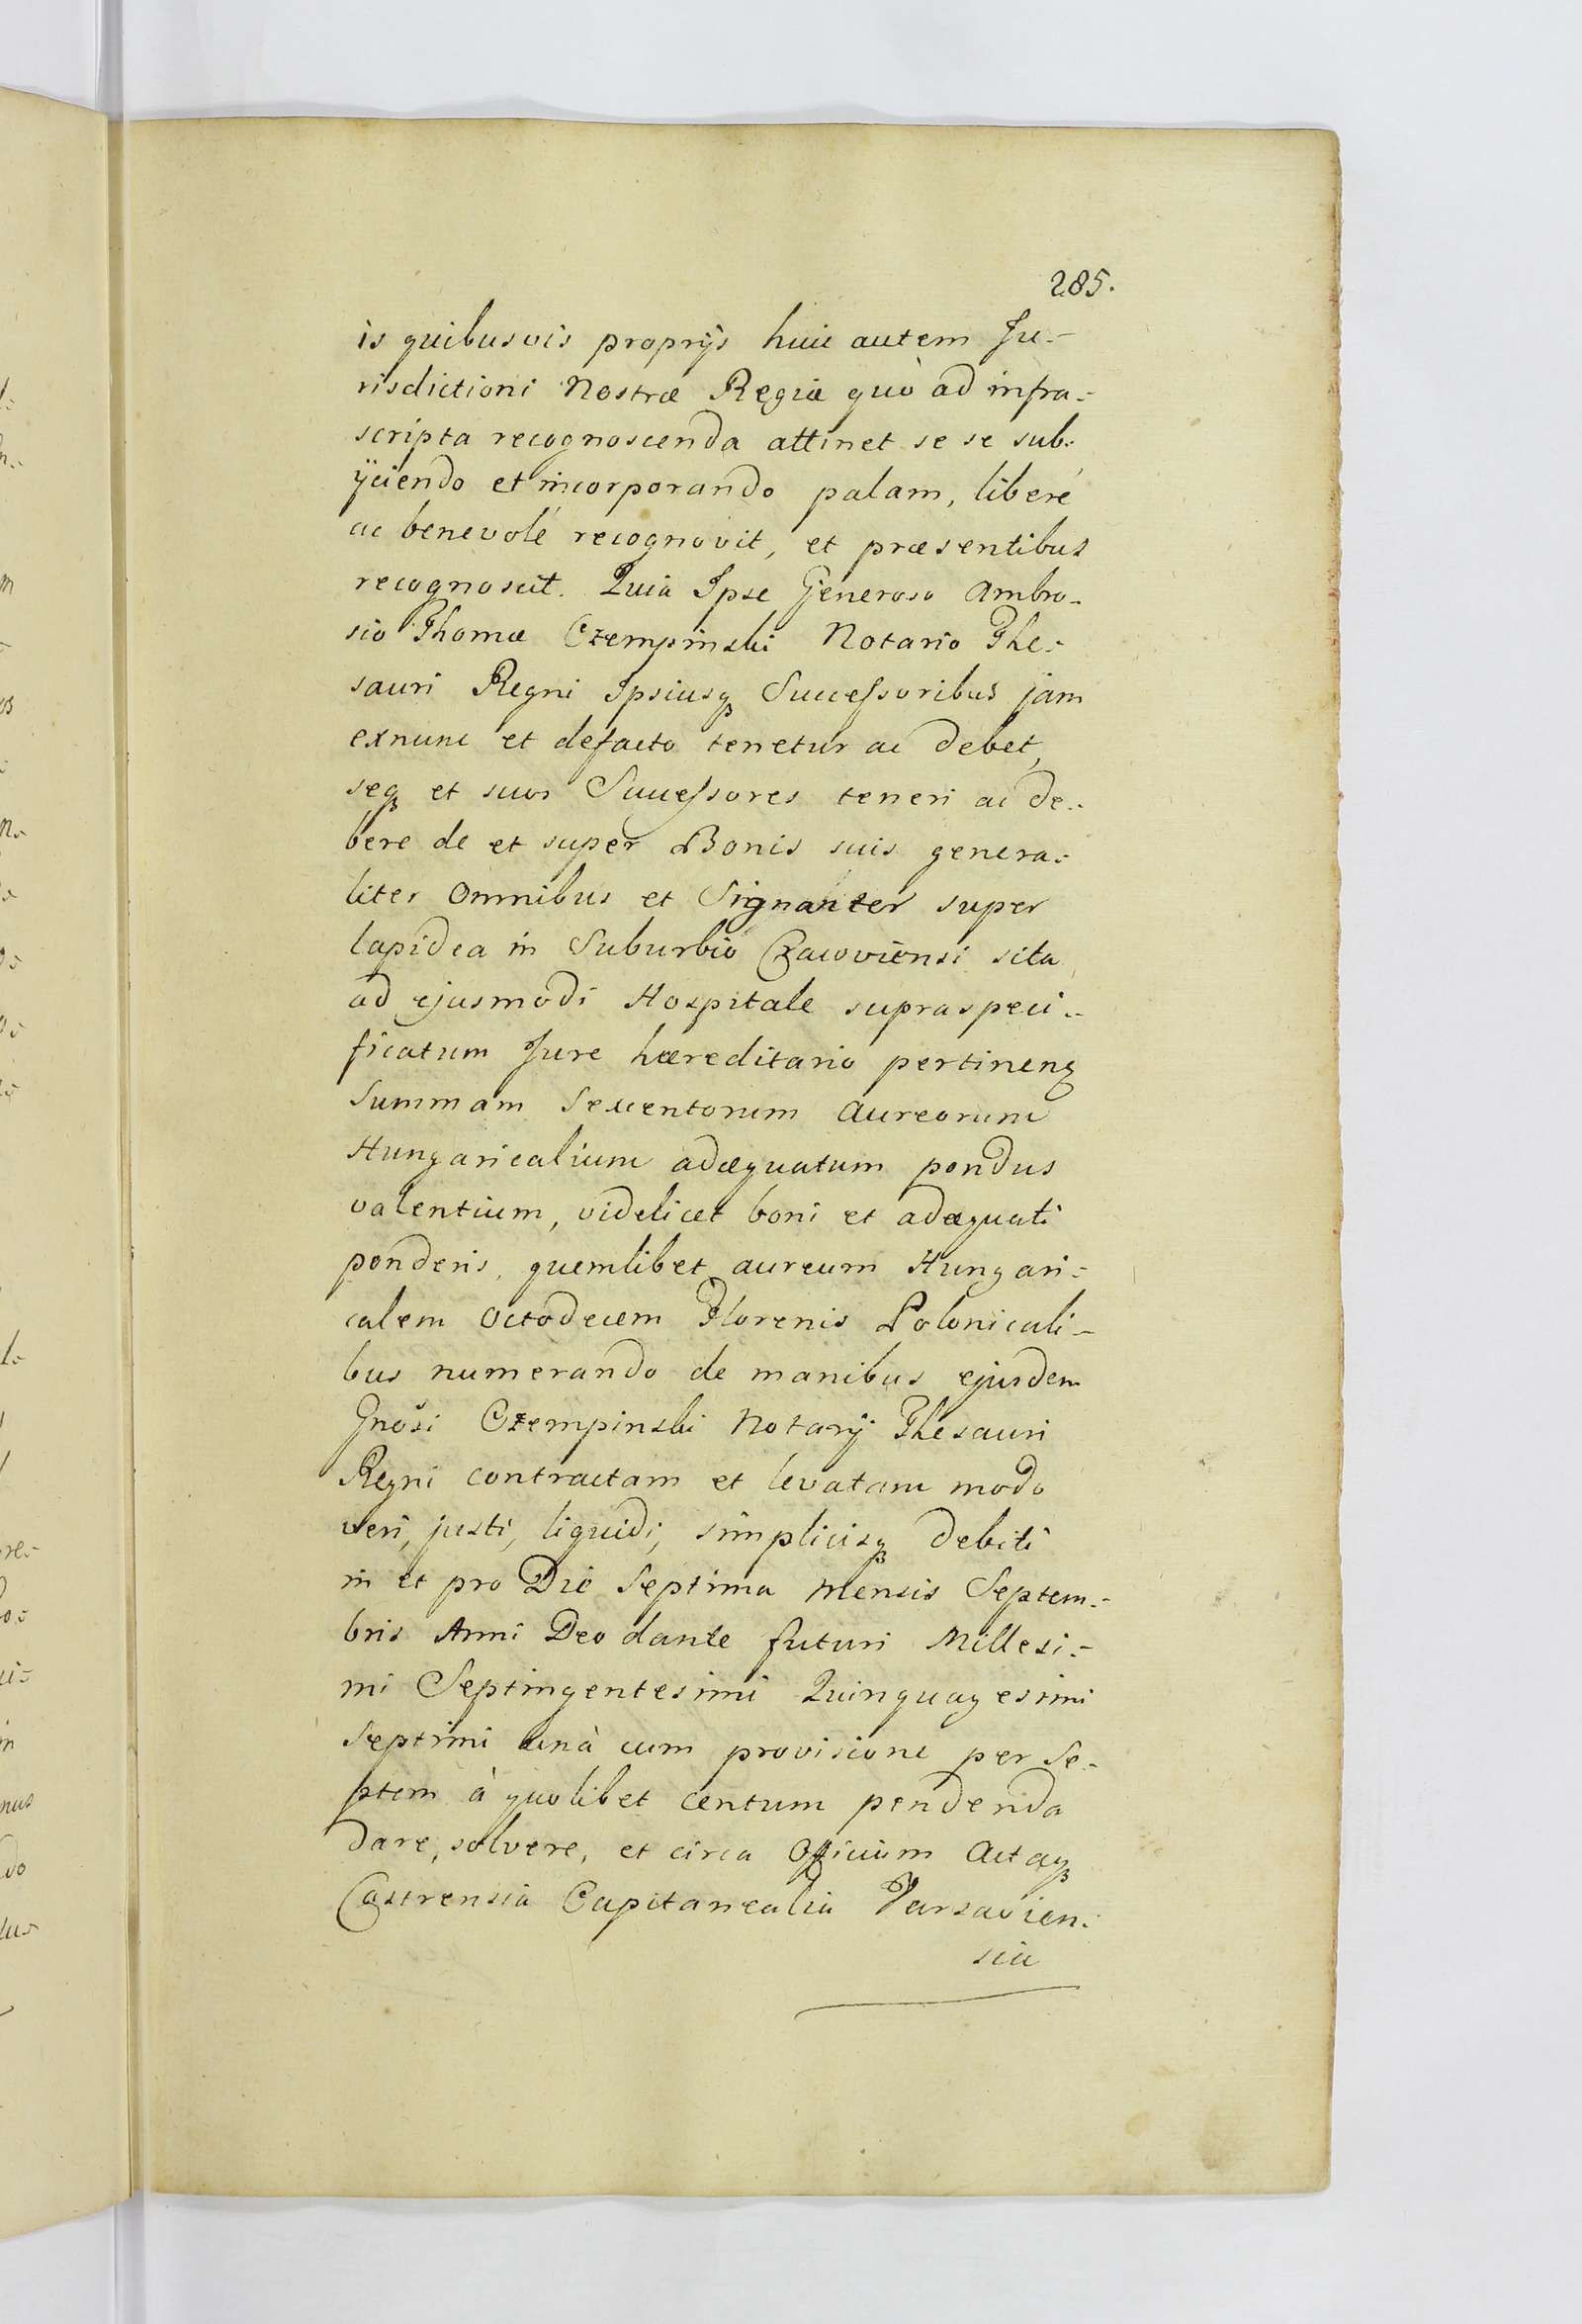 285.
is quibusvis proprijs huic autem Ju-
risdictioni Nostræ Regiæ quò ad infra-
scripta recognoscenda attinet se se sub-
ijciendo et incorporando palam, liberé
ac benevolé recognovit, et præsentibus
recognoscit. Quia Ipse Generoso Ambro-
sio Thomæ Czempinski Notario The-
sauri Regni Ipsiusq Successoribus jam
exnunc et defacto tenetur ac debet,
seq et suos Successores teneri ac de-
bere de et super Bonis suis genera-
liter Omnibus et Signanter super
lapidea in Suburbio Cracoviensi sita
ad ejusmodi Hospitale supraspeci-
ficatum Jure hæreditario pertinen
Summam Sexcentorum Aureorum
Hungaricalium adæquatum pondus
valentium, videlicet boni et adæquati
ponderis, quemlibet aureum Hungari-
calem Octodecem Florenis Polonicali-
bus numerando de manibus ejusdem
Gnosi Czempinski Notarij Thesauri
Regni contractam et levatam modo
veri, justi, liquidi, simplicisq debiti
in et pro Die Septima Mensis Septem-
bris Anni Deo dante futuri Millesi-
mi Septingentesimi Quinquagesimi
Septimi unà cum provisione per Se-
ptem à quolibet Centum pendenda
dare, solvere, et circa Officium Actaq
Castrensia Capitanealia Varsavien-
sia